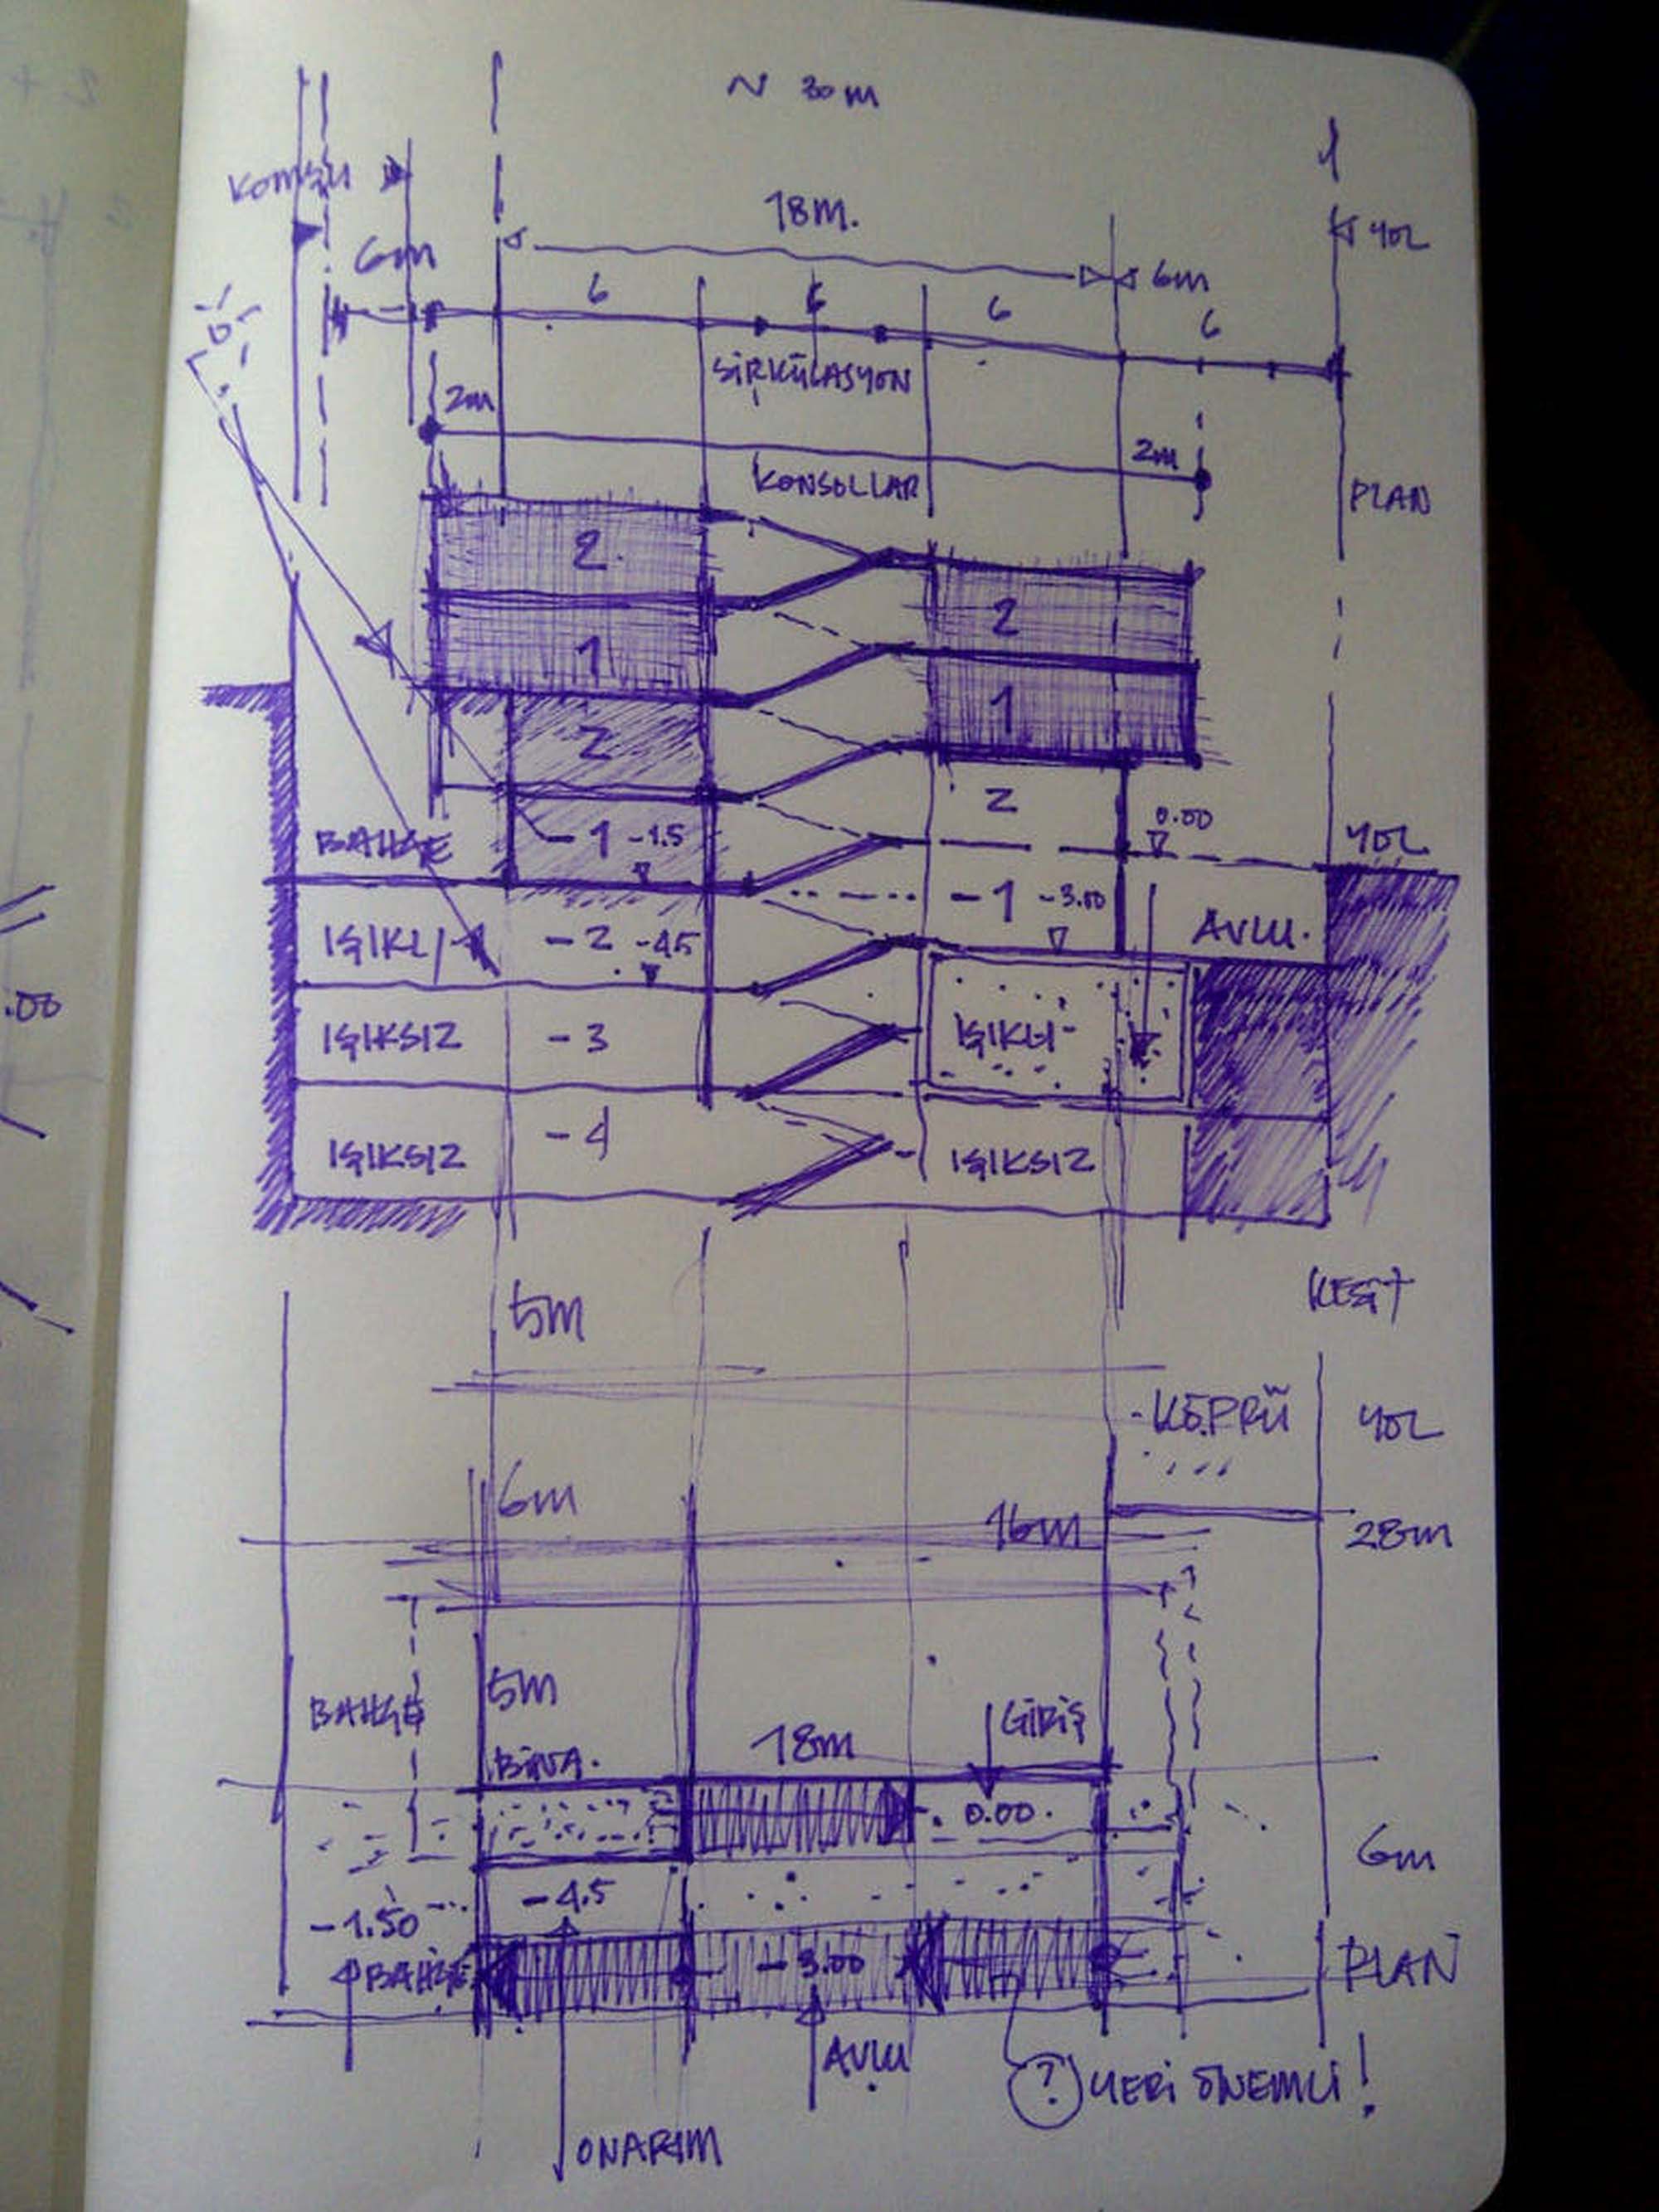 N 30m
KOMŞU
18M.
YOL
6m
6m
6
6
6
6
SİRKÜLASYON
2m
2m
KONSOLLAR
PLAN
2.
2
1
1
2
2
0.00
YOL
BAHÇE
-1 -1.5
-1 -3.00
AVLU.
IŞIKLI
-2 -4.5
IŞIKSIZ
-3
IŞIKLI
IŞIKSIZ
-4
IŞIKSIZ
KESİT
5m
-KÖPRÜ
YOL
6m
16m
28m
BAHÇE
5m
GİRİŞ
18m
BİNA.
0.00.
6m
-4.5
-1.50
BAHÇE
-3.00
PLAN
AVLU
? YERİ ÖNEMLİ!
ONARIM
.00